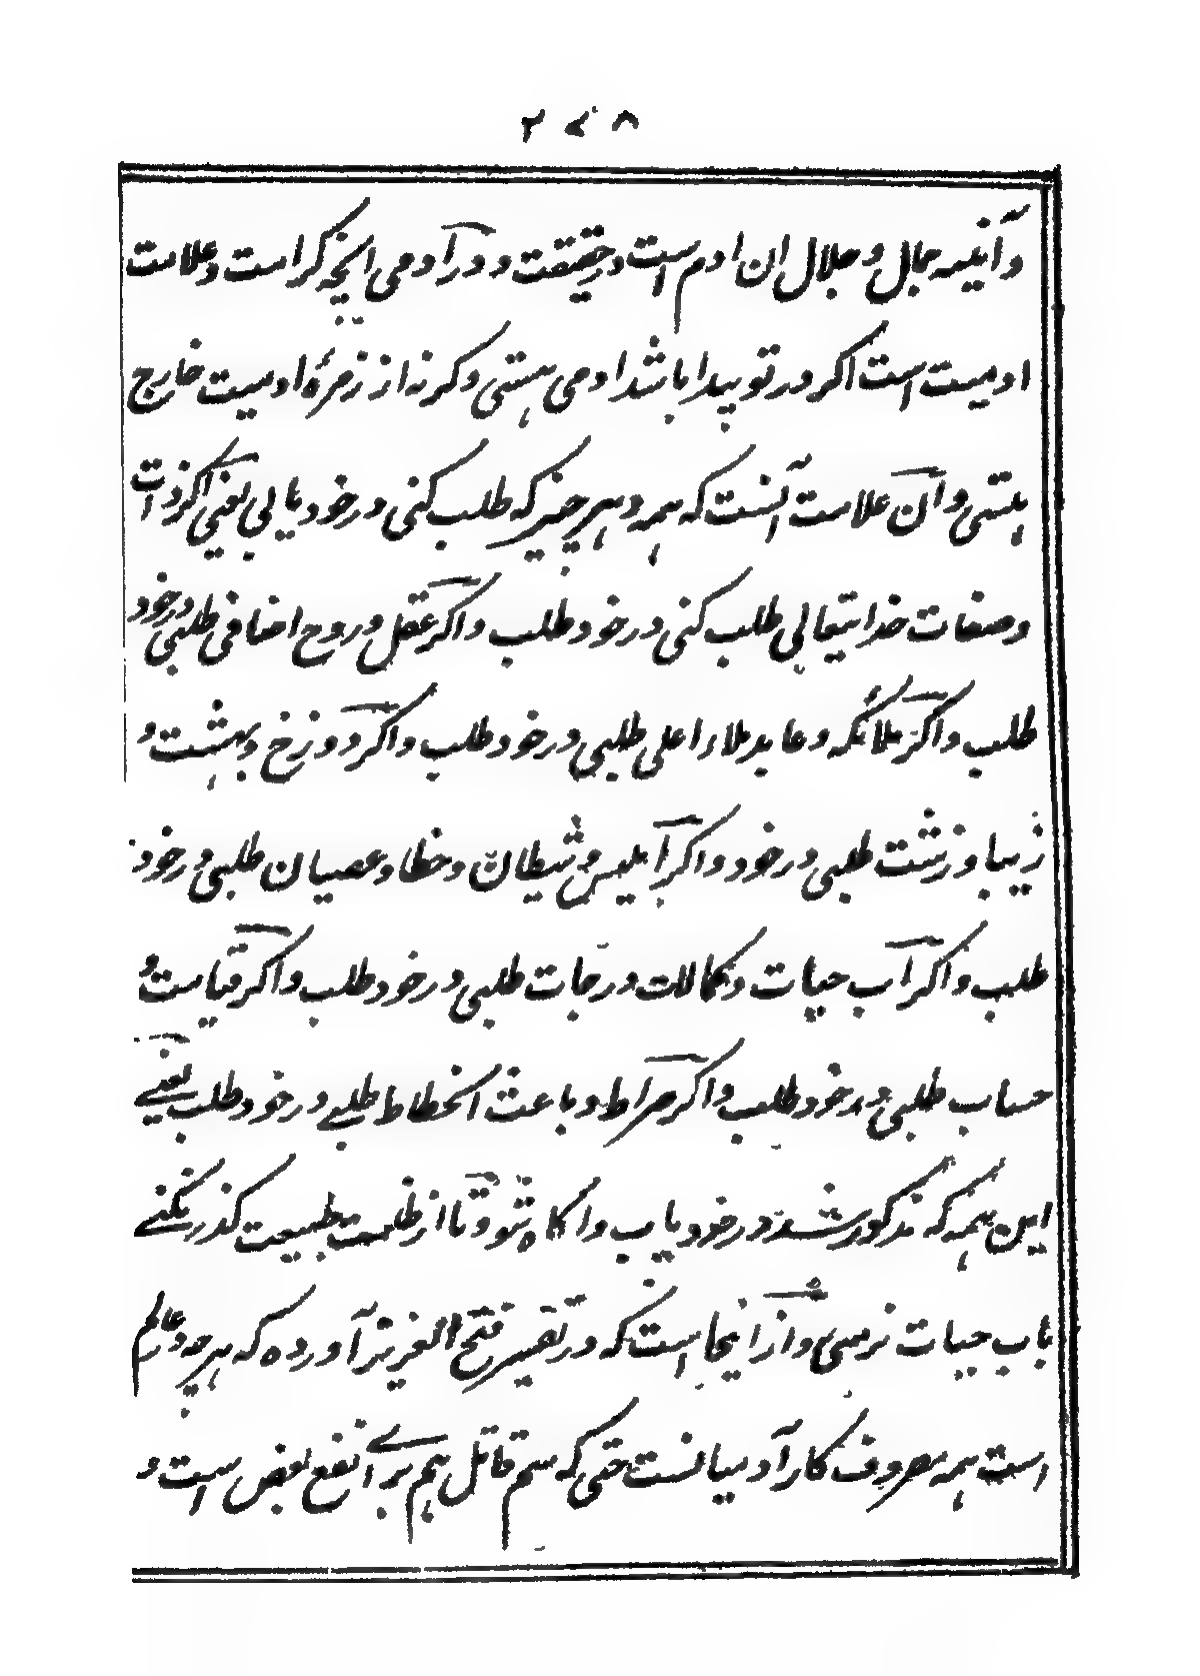 ۲۷۸
و آئینه جمال و جلال ان ادم است در حقیقت و در آدمی انچه کراست و علامت
ادمیت است اکر در تو پیدا باشد ادمی هستی و کرنه از زمرۀ ادمیت خارج
هستی و آن علامت آنست که همه و هر چیز که طلب کنی در خود یابی یعنی اکر ذات
و صفات خدایتعالی طلب کنی در خود طلب و اکر عقل و روح اضافی طلبی در خود
طلب و اکر ملائکه و عابد ملاء اعلی طلبی در خود طلب و اکر دوزخ و بهشت و
زیبا و زشت طلبی در خود و اکر ابلیس و شیطان و خطا و عصیان طلبی در خود
طلب و اکر آب حیات و کمالات و درجات طلبی در خود طلب و اکر قیامت و
حساب طلبی در خود طلب و اکر صراط و باعث انحطاط طلبے در خود طلب یعنے
این همه که مذکور شد در خود یاب و اکاه شو و تا از ظلمت طبیعت کذر نکنے
باب حیات نرسی و از اینجاست که در تفسیر فتح العزیز آورده که هر چه در عالم
است همه مصروف کار آدمیانست حتی که سم قاتل هم برائے نفع بعض است و